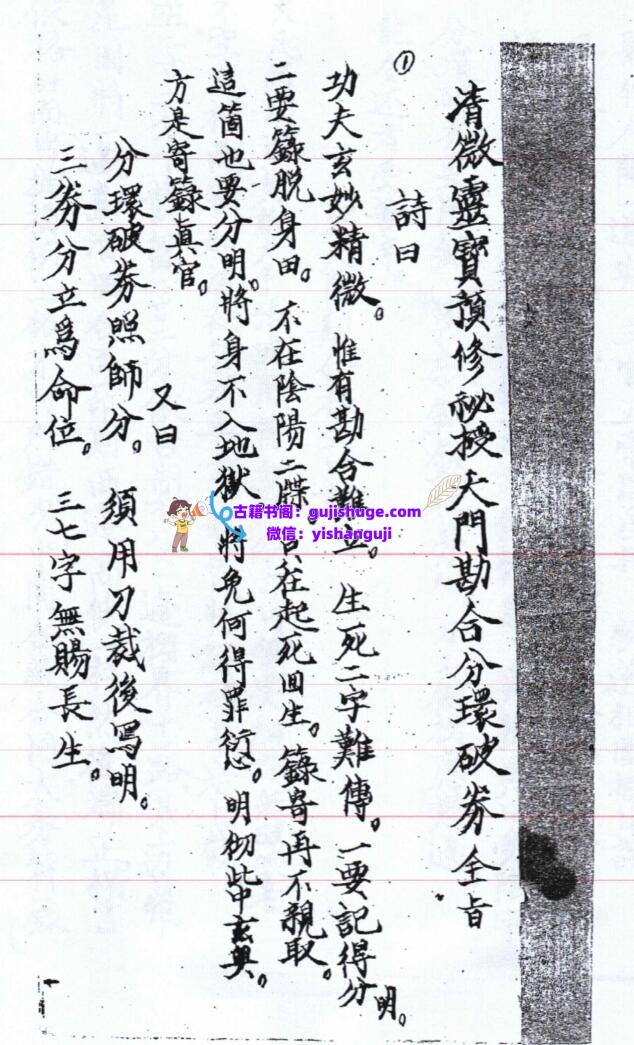 清微靈寶預修祕授天門勘合分環破劵全旨
詩曰
①
功夫玄妙精微。惟有勘合難立。生死二字難傳。一要記得分明。
二要籙脱身田。不在陰陽二牒。只在起死回生。籙寄再不親取。
這箇也要分明。將身不入地獄。將免何得罪愆。明彻此中玄奥。
方是寄籙真官。
又曰
分環破劵照師分。須用刀裁後寫明。
三劵分立爲命位。三七字無賜長生。
古籍书阁:gujishuge.com
微信:yishanguji